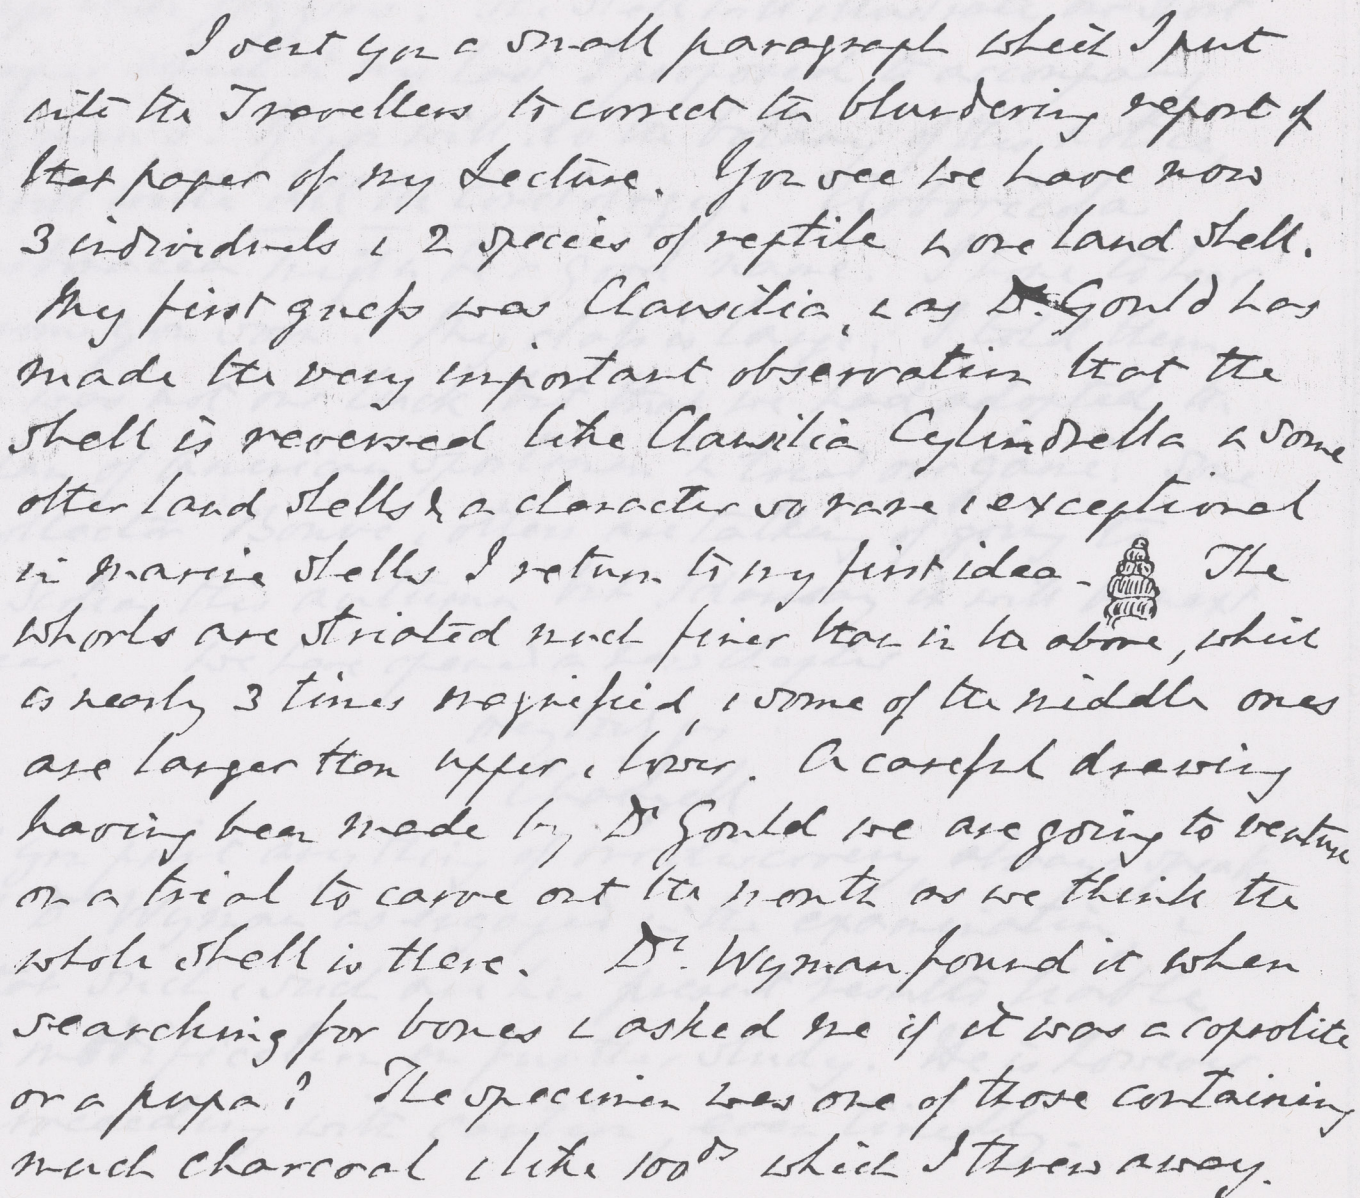 I sent you a small paragraph which I put
into the Travellers to correct the blundering report of
that paper of my Lecture. You see we have now
3 individuals & 2 species of reptile & one land shell.
My first guess was Clausilia, & as Dr. Gould has
made the very important observation that the
shell is reversed like Clausilia Cylindrella & some
other land shells & a character so rare & exceptional
in marine shells I return to my first idea. The
whorls are striated much finer than in the above, which
is nearly 3 times magnified, & some of the middle ones
are larger than upper & lower. A careful drawing
having been made by Dr Gould we are going to venture
on a trial to carve out the mouth as we think the
whole shell is there. Dr. Wyman found it when
searching for bones & asked me if it was a coprolite
or a pupa? The specimen was one of those containing
much charcoal & like 100ds which I threw away.